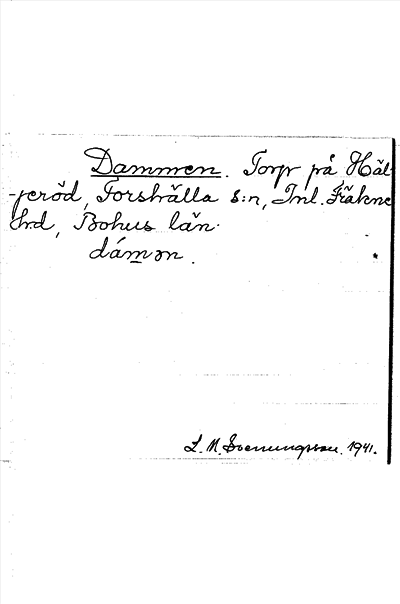 Dammen. Torp på Häl-
-jeröd, Forshälla s:n, Inl. Fräkne
Hd, Bohus län.
dám̲ən.
L. M. Svenungsson. 1941.